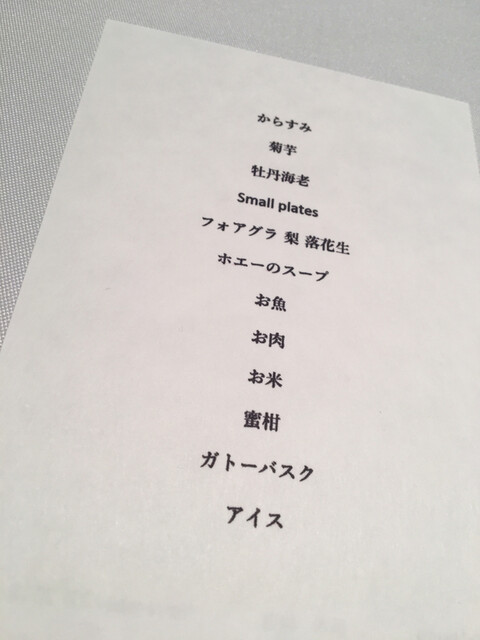 からすみ
菊芋
牡丹海老
Small plates
フォアグラ 梨 落花生
ホエーのスープ
お魚
お肉
お米
蜜柑
ガトーバスク
アイス